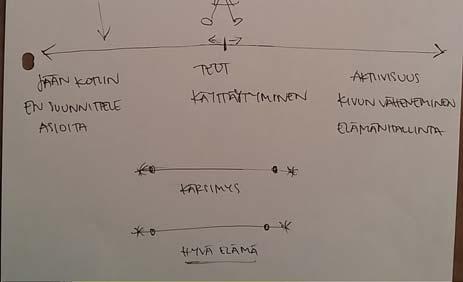 JÄÄN KOTIIN
EN SUUNNITTELE
ASIOITA
TEOT
KÄYTTÄYTYMINEN
AKTIIVISUUS
KIVUN VÄHENEMINEN
ELÄMÄNHALLINTA
KÄRSIMYS
HYVÄ ELÄMÄ